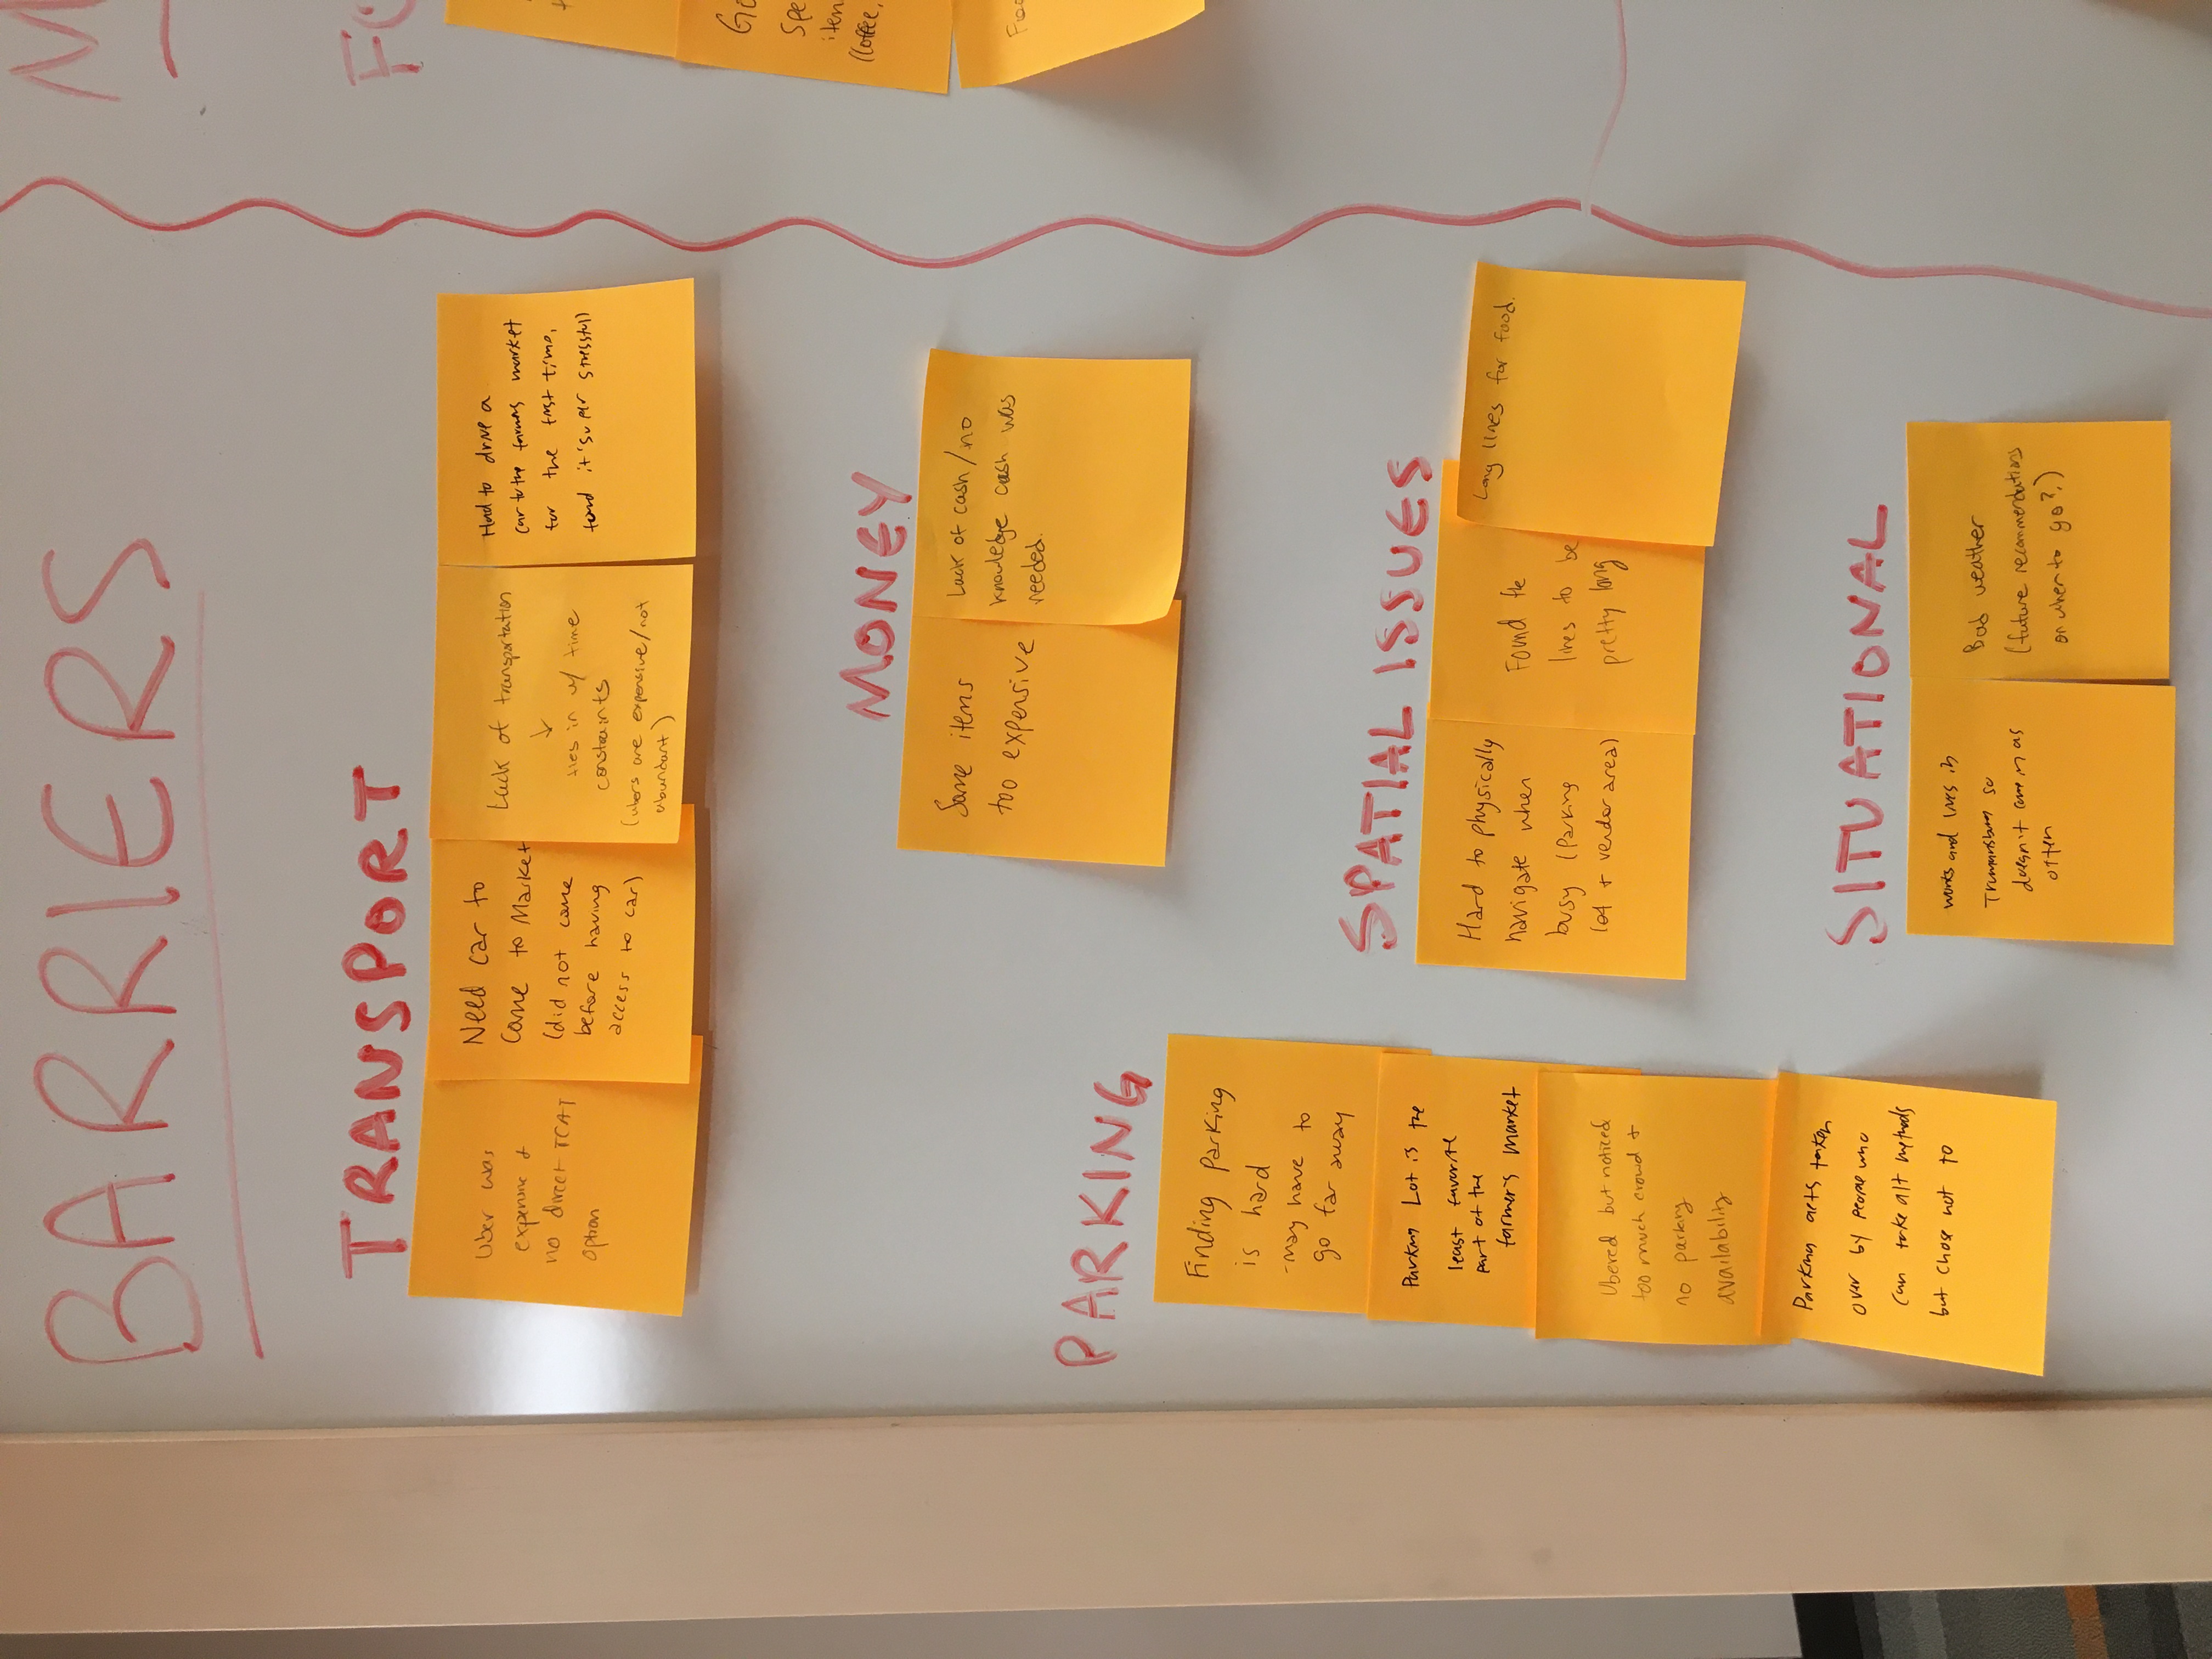 BARRIERS
TRANSPORT
Uber was
expensive +
no direct TCAT
option
Need car to
come to Market
(did not come
before having
access to car)
Lack of transportation
↓
ties in w/ time
constraints
(ubers are expensive/not
abundant)
Had to drive a
car to the farmers market
for the first time,
found it 'super stressful)
MONEY
Some items
too expensive
Lack of cash/no
knowledge cash was
needed.
PARKING
Finding parking
is hard
-may have to
go far away
Parking Lot is the
least favorite
part of the
farmer's market
Ubered but noticed
too much crowd +
no parking
availability
Parking gets taken
over by people who
can take alt methods
but chose not to
SPATIAL ISSUES
Hard to physically
navigate when
busy (Parking
lot + vendor area)
Found the
lines to be
pretty long
Long lines for food.
SITUATIONAL
works and lives in
Trumansburg so
doesn't come in as
often
Bad weather
(future recommendations
on when to go?)
M
FO
Go
Spe
item
(Coffee,
Foo